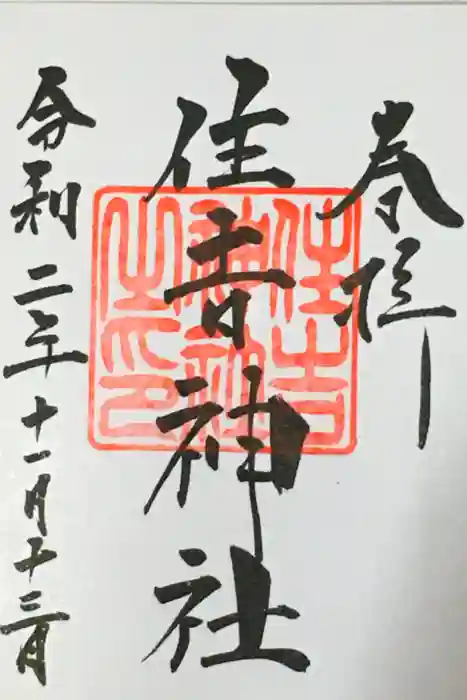 奉拝
住吉神社
令和二年十一月二十三日
住吉
神社
之印